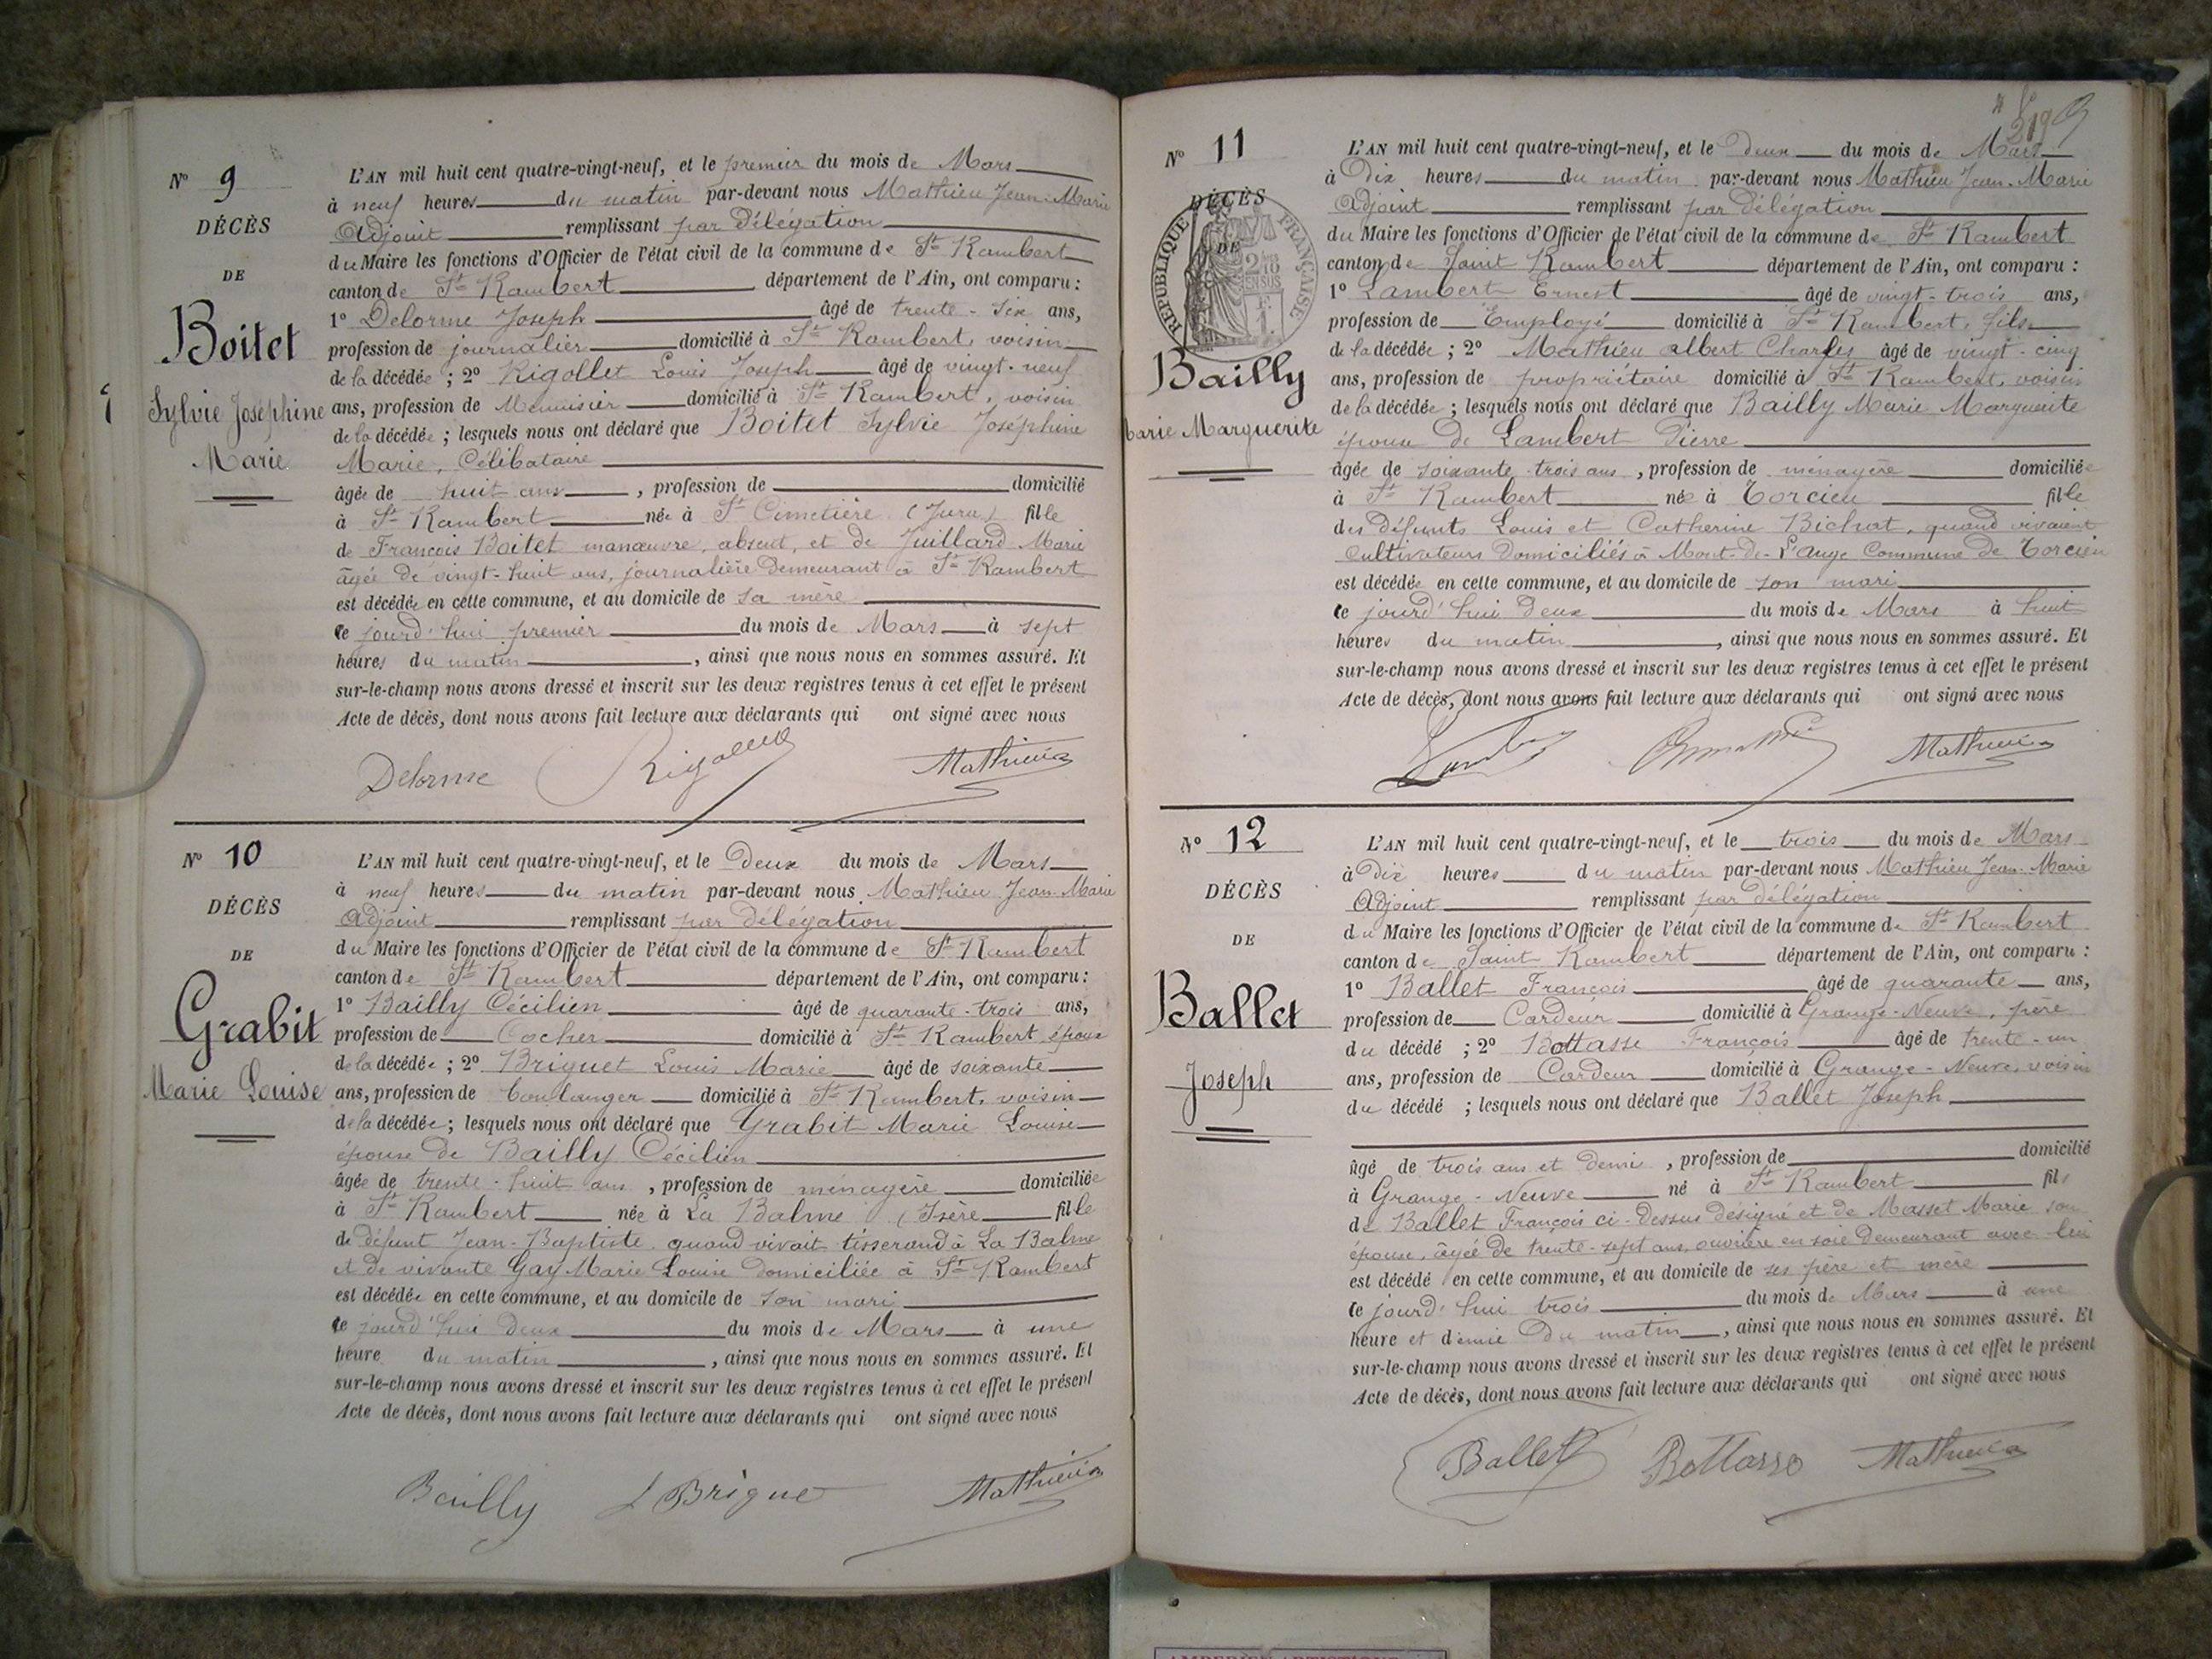 N° 9
DÉCÈS
DE
Boitet
Sylvie Joséphine
Marie
L'AN mil huit cent quatre-vingt-neuf, et le premier du mois de Mars
à neuf heures du matin par-devant nous Mathieu Jean-Marie
Adjoint remplissant par Délégation
du Maire les fonctions d'Officier de l'état civil de la commune de St Rambert
canton de St Rambert département de l'Ain, ont comparu :
1° Delorme Joseph âgé de trente-six ans,
profession de journalier domicilié à St Rambert, voisin
de la décédée ; 2° Rigollet Louis Joseph âgé de vingt-neuf
ans, profession de Menuisier domicilié à St Rambert, voisin
de la décédée ; lesquels nous ont déclaré que Boitet Sylvie Joséphine
Marie, Célibataire
âgée de huit ans, profession de domicilié
à St Rambert née à St Cimetière (Jura) fille
de François Boitet manœuvre, absent, et de Juillard Marie
âgée de vingt-huit ans, journalière demeurant à St Rambert
est décédée en cette commune, et au domicile de sa mère
ce jourd'hui premier du mois de Mars à sept
heures du matin, ainsi que nous nous en sommes assuré. Et
sur-le-champ nous avons dressé et inscrit sur les deux registres tenus à cet effet le présent
Acte de décès, dont nous avons fait lecture aux déclarants qui ont signé avec nous
Delorme Rigollet Mathieu
N° 10
DÉCÈS
DE
Grabit
Marie Louise
L'AN mil huit cent quatre-vingt-neuf, et le Deux du mois de Mars
à neuf heures du matin par-devant nous Mathieu Jean-Marie
Adjoint remplissant par Délégation
du Maire les fonctions d'Officier de l'état civil de la commune de St Rambert
canton de St Rambert département de l'Ain, ont comparu :
1° Bailly Cécilien âgé de quarante-trois ans,
profession de Cocher domicilié à St Rambert époux
de la décédée ; 2° Briquet Louis Marie âgé de soixante
ans, profession de boulanger domicilié à St Rambert, voisin
de la décédée ; lesquels nous ont déclaré que Grabit Marie Louise
épouse de Bailly Cécilien
âgée de trente-huit ans, profession de ménagère domiciliée
à St Rambert née à La Balme (Isère fille
de défunt Jean-Baptiste quand vivait tisserand à La Balme
et de vivante Gay Marie Louise domiciliée à St Rambert
est décédée en cette commune, et au domicile de son mari
ce jourd'hui Deux du mois de Mars à une
heure du matin, ainsi que nous nous en sommes assuré. Et
sur-le-champ nous avons dressé et inscrit sur les deux registres tenus à cet effet le présent
Acte de décès, dont nous avons fait lecture aux déclarants qui ont signé avec nous
Bailly L Brique Mathieu
219
N° 11
DÉCÈS
DE
RÉPUBLIQUE FRANÇAISE
Bailly
Marie Marguerite
L'AN mil huit cent quatre-vingt-neuf, et le Deux du mois de Mars
à Dix heures du matin par-devant nous Mathieu Jean-Marie
Adjoint remplissant par Délégation
du Maire les fonctions d'Officier de l'état civil de la commune de St Rambert
canton de Saint Rambert département de l'Ain, ont comparu :
1° Lambert Ernest âgé de vingt-trois ans,
profession de Employé domicilié à St Rambert, fils
de la décédée ; 2° Mathieu albert Charles âgé de vingt-cinq
ans, profession de propriétaire domicilié à St Rambert, voisin
de la décédée ; lesquels nous ont déclaré que Bailly Marie Marguerite
épouse de Lambert Pierre
âgée de soixante-trois ans, profession de ménagère domiciliée
à St Rambert née à Torcieu fille
des défunts Louis et Catherine Bichat, quand vivaient
Cultivateurs Domiciliés à Mont-de-L'ange Commune de Torcieu
est décédée en cette commune, et au domicile de son mari
ce jourd'hui Deux du mois de Mars à huit
heures du matin, ainsi que nous nous en sommes assuré. Et
sur-le-champ nous avons dressé et inscrit sur les deux registres tenus à cet effet le présent
Acte de décès, dont nous avons fait lecture aux déclarants qui ont signé avec nous
Mathieu
N° 12
DÉCÈS
DE
Ballet
Joseph
L'AN mil huit cent quatre-vingt-neuf, et le trois du mois de Mars
à Dix heures du matin par-devant nous Mathieu Jean-Marie
Adjoint remplissant par Délégation
du Maire les fonctions d'Officier de l'état civil de la commune de St Rambert
canton de Saint Rambert département de l'Ain, ont comparu :
1° Ballet François âgé de quarante ans,
profession de Cardeur domicilié à Grange-Neuve, père
du décédé ; 2° Bottasse François âgé de trente-un
ans, profession de Cardeur domicilié à Grange-Neuve, voisin
du décédé ; lesquels nous ont déclaré que Ballet Joseph
âgé de trois ans et demi, profession de domicilié
à Grange-Neuve né à St Rambert fils
de Ballet François ci-dessus désigné et de Masset Marie son
épouse, âgée de trente-sept ans, ouvrière en soie demeurant avec lui
est décédé en cette commune, et au domicile de ses père et mère
ce jourd'hui trois du mois de Mars à une
heure et demie Du matin, ainsi que nous nous en sommes assuré. Et
sur-le-champ nous avons dressé et inscrit sur les deux registres tenus à cet effet le présent
Acte de décès, dont nous avons fait lecture aux déclarants qui ont signé avec nous
Ballet Bottasso Mathieu